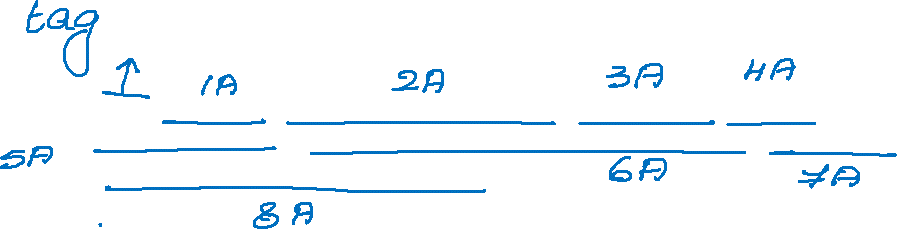 tag
1A 2A 3A 4A
5A
6A 7A
8A